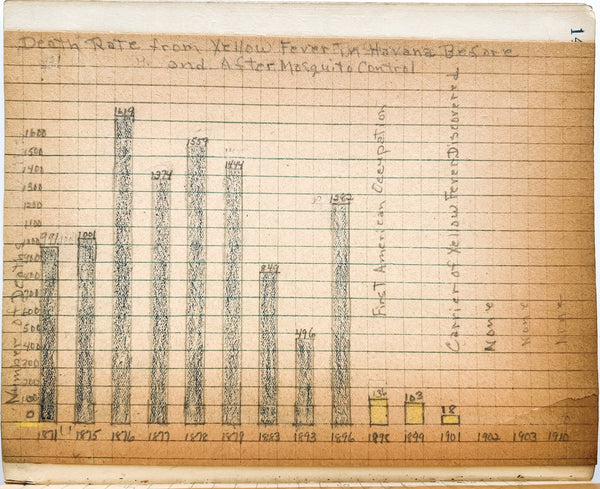 Death Rate from Yellow Fever in Havana Before
and After Mosquito Control
Number of Deaths
1600
1500
1400
1300
1200
1100
1000
900
800
700
600
500
400
300
200
100
0
991
1001
1619
1374
1559
1444
849
496
1282
136
103
18
First American Occupation
Carrier of Yellow Fever Discovered
None
None
None
1871 1875 1876 1877 1878 1879 1883 1893 1896 1898 1899 1901 1902 1903 1910